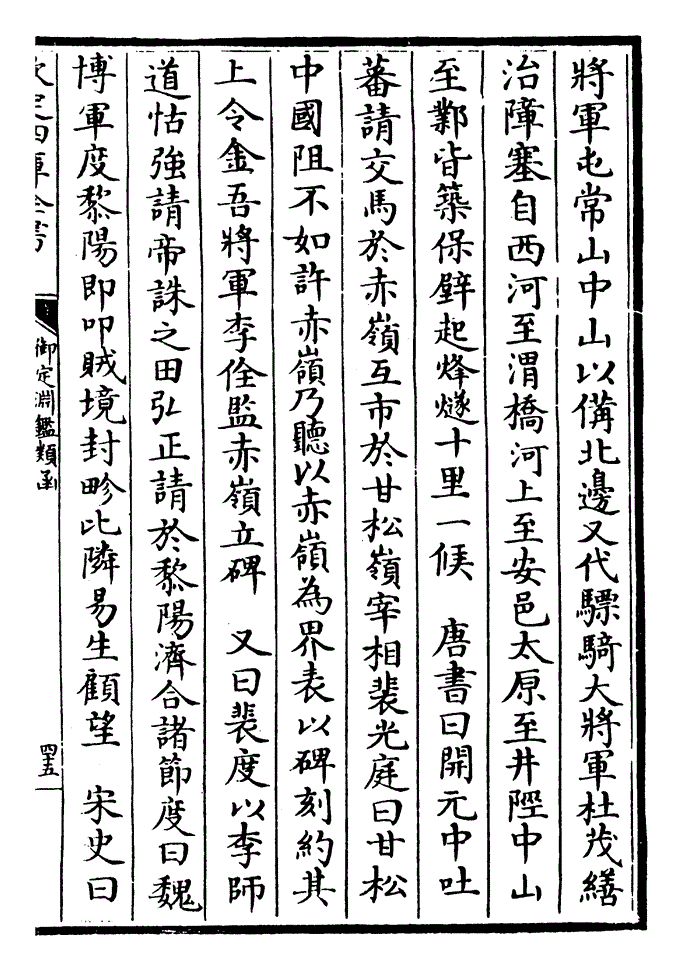 將軍屯常山中山以備北邊又代驃騎大將軍杜茂繕
治障塞自西河至渭橋河上至安邑太原至井陘中山
至鄴皆築保壁起烽燧十里一候　唐書曰開元中吐
蕃請交馬於赤嶺互市於甘松嶺宰相裴光庭曰甘松
中國阻不如許赤嶺乃聽以赤嶺為界表以碑刻約其
上令金吾將軍李佺監赤嶺立碑　又曰裴度以李師
道怙強請帝誅之田弘正請於黎陽濟合諸節度曰魏
博軍度黎陽即叩賊境封畛比隣易生顧望　宋史曰
欽定四庫全書
御定淵鑑類函
四五